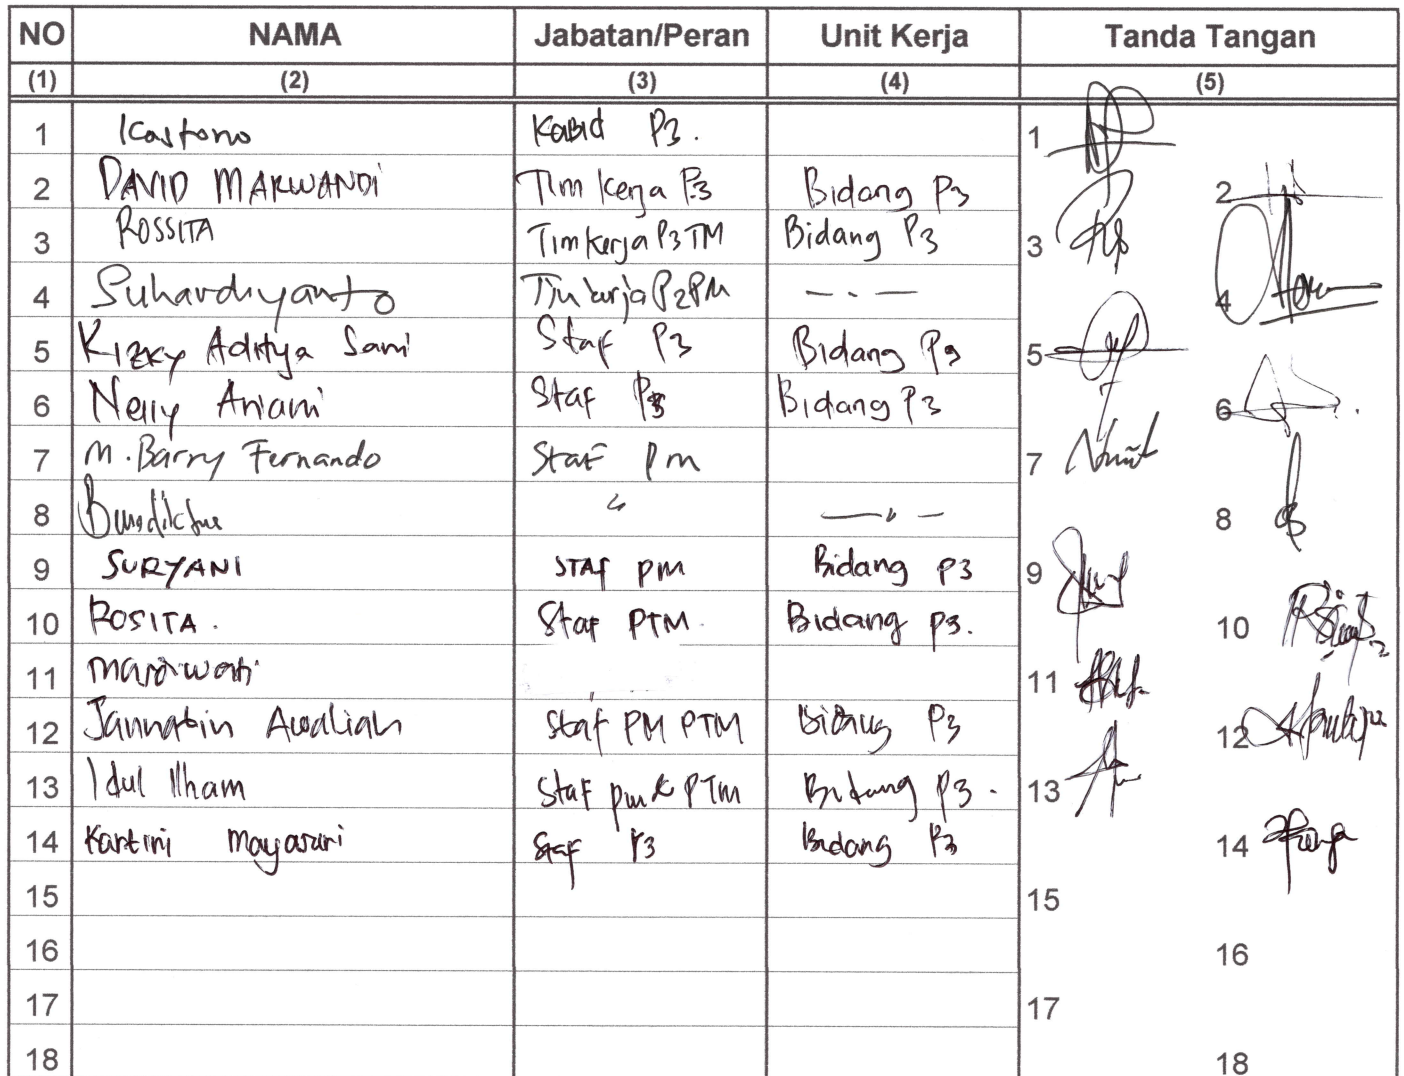 NO NAMA Jabatan/Peran Unit Kerja Tanda Tangan
(1) (2) (3) (4) (5)
1 Kastono Kabid P3. 1
2 DAVID MARWANDI Tim Kerja P3 Bidang P3 2
3 ROSSITA Tim Kerja P3TM Bidang P3 3
4 Suhardiyanto Tim kerja P2PM — . — 4
5 Rizky Aditya Sani Staf P3 Bidang P3 5
6 Nelly Ariani Staf P3 Bidang P3 6
7 M. Barry Fernando Staf Pm 7
8 Benediktus " — " — 8
9 SURYANI STAF PM Bidang P3 9
10 ROSITA. Staf PTM. Bidang P3. 10
11 Mardiwati 11
12 Jannatin Awaliah Staf PM PTM Bidang P3 12
13 Idul Ilham Staf pm & PTM Bidang P3. 13
14 Kartini Mayasari Staf P3 Bidang P3 14
15 15
16 16
17 17
18 18